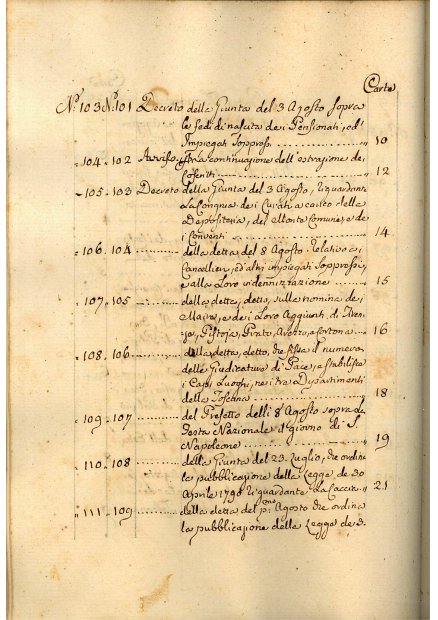 Carte
N.º 103 N.º 101 Decreto della Giunta del 3 Agosto sopra
le fedi di nascita dei Pensionati, ed
Impiegati Soppressi ........ 10
" 104 . 102 Avviso p la continuazione dell'estrazione dei
Coscritti ........ " 12
" 105 . 103 Decreto della Giunta del 3 Agosto, riguardante
La Congrua dei Curati a carico della
Depositeria, del Monte Comune, e dei
Conventi ........ " 14.
" 106 . 104 ........ della detta del 8 Agosto. Relativo ai
Cancellieri, ed altri impiegati Soppressi,
e alla Loro indennizzazione ........ " 15
" 107 . 105 ........ della detta, detto, sulla nomina dei
Maires, e dei Loro Aggiunti di Firen-
ze, Pistoja, Prato, Arezzo, e Cortona ... " 16
" 108 . 106 ........ della detta, detto, che fissa il numero
delle Giudicature di Pace, e stabilisce
i Capi Luoghi, nei tre Dipartimenti
della Toscana ........ " 18
" 109 . 107 ........ del Prefetto delli 8 Agosto sopra la
Festa Nazionale il giorno di S.
Napoleone ........ " 19
" 110 . 108 ........ della Giunta del 29 Luglio, che ordina
la pubblicazione della Legge de 30
Aprile 1790 riguardante La Caccia .. " 21
" 111 . 109 ........ della detta del pmo Agosto che ordina
la pubblicazione della Legge de 3.